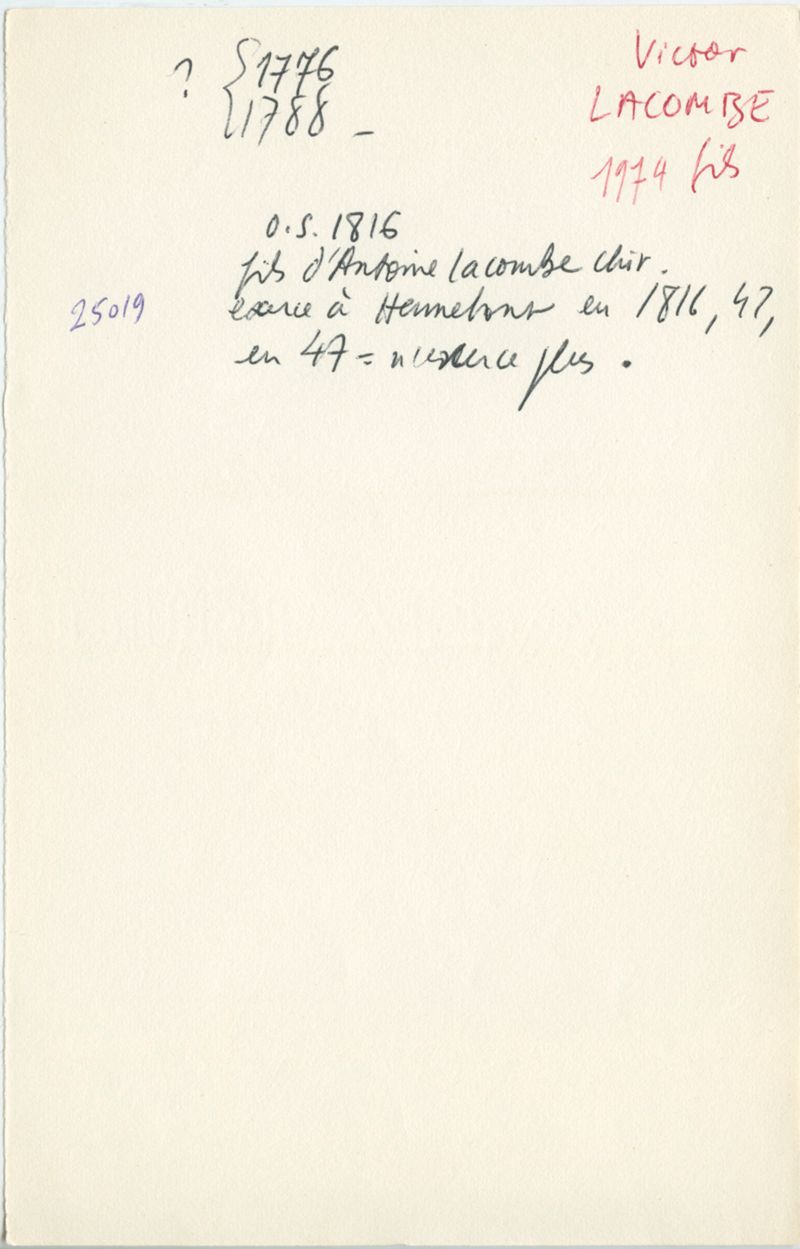 ? { 1776
1788 –
Victor
LACOMBE
1974 fils
o.s. 1816
fils d'Antoine Lacombe chir.
exerce à Hennebont en 1816, 47,
25019
en 47 = n'exerce plus.